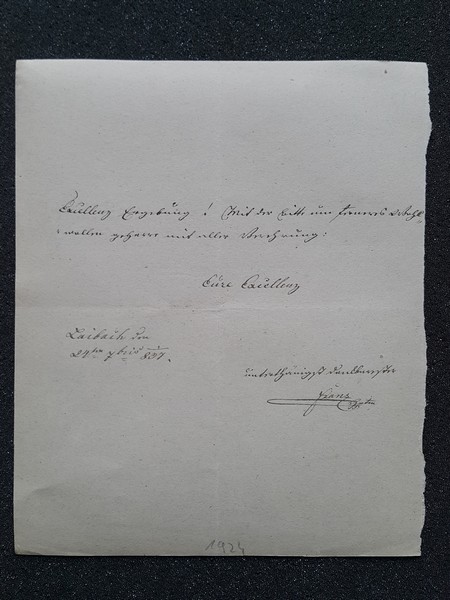 Excellenz Ergebung! Mit der Bitte um ferneres Wohl-
wollen geharre mit aller Verehrung:
Eure Excellenz
Laibach den
24ten 7bris 837.
unterthänigst dankbarster
Franz
1924